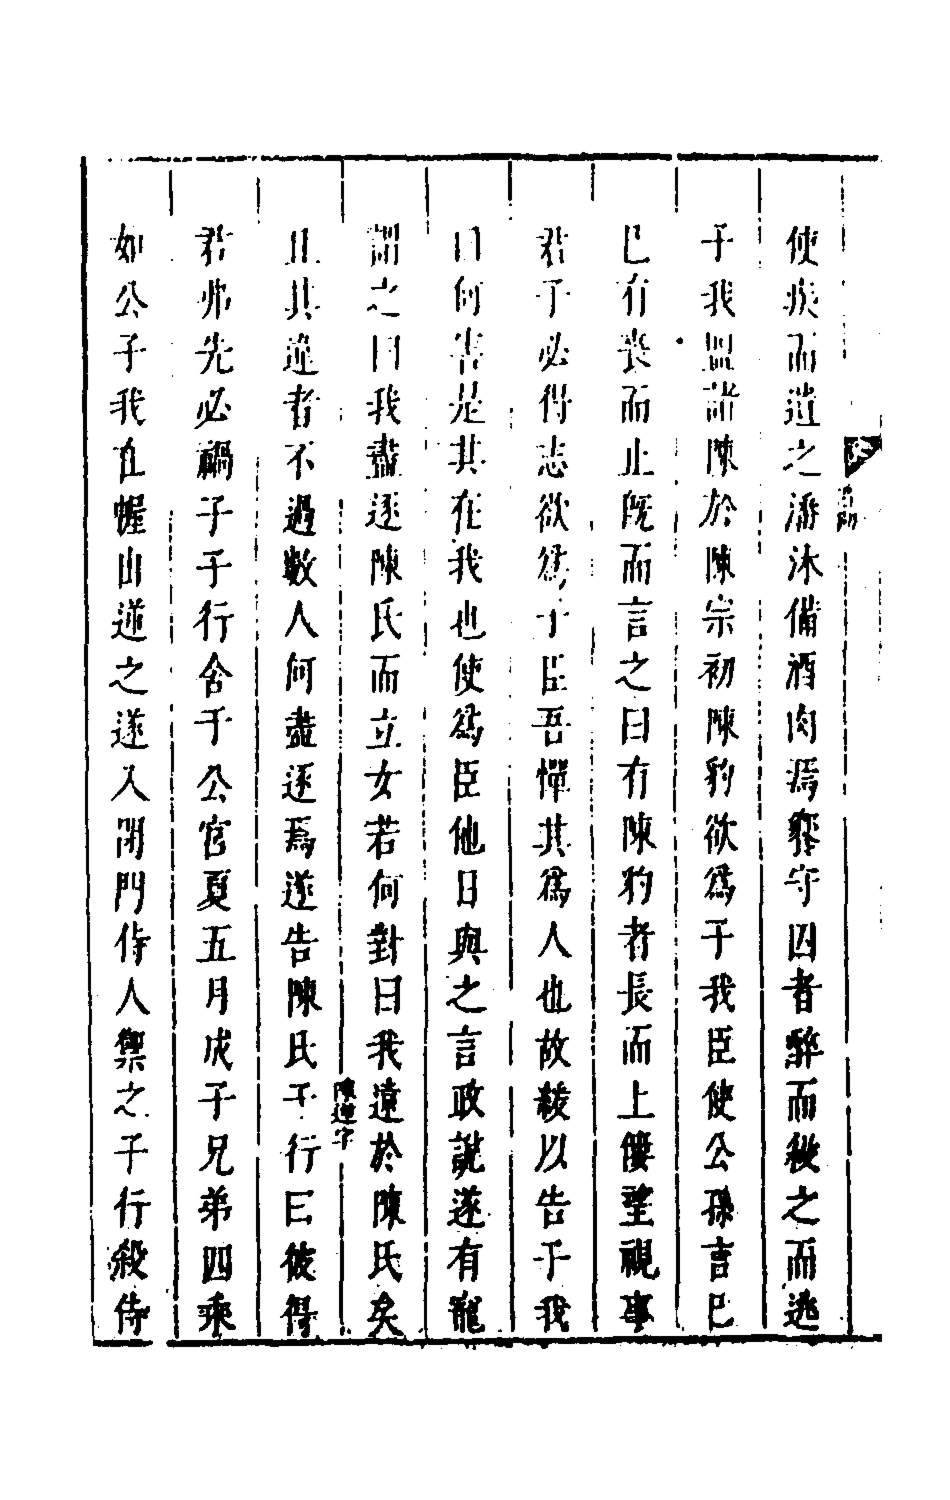 使疾而遺之潘沐備酒肉焉饗守囚者醉而殺之而逃
子我盟諸陳於陳宗初陳豹欲爲子我臣使公孫言已
已有喪而止旣而言之曰有陳豹者長而上僂望視事
君子必得志欲爲子臣吾憚其爲人也故緩以告子我
曰何害是其在我也使爲臣他日與之言政說遂有寵
謂之曰我盡逐陳氏而立女若何對曰我遠於陳氏矣
且其違者不過數人何盡逐焉遂告陳氏子行曰彼得
陳逆字
君弗先必禍子子行舍于公宮夏五月成子兄弟四乘
如公子我在幄出逆之遂入閉門侍人禦之子行殺侍